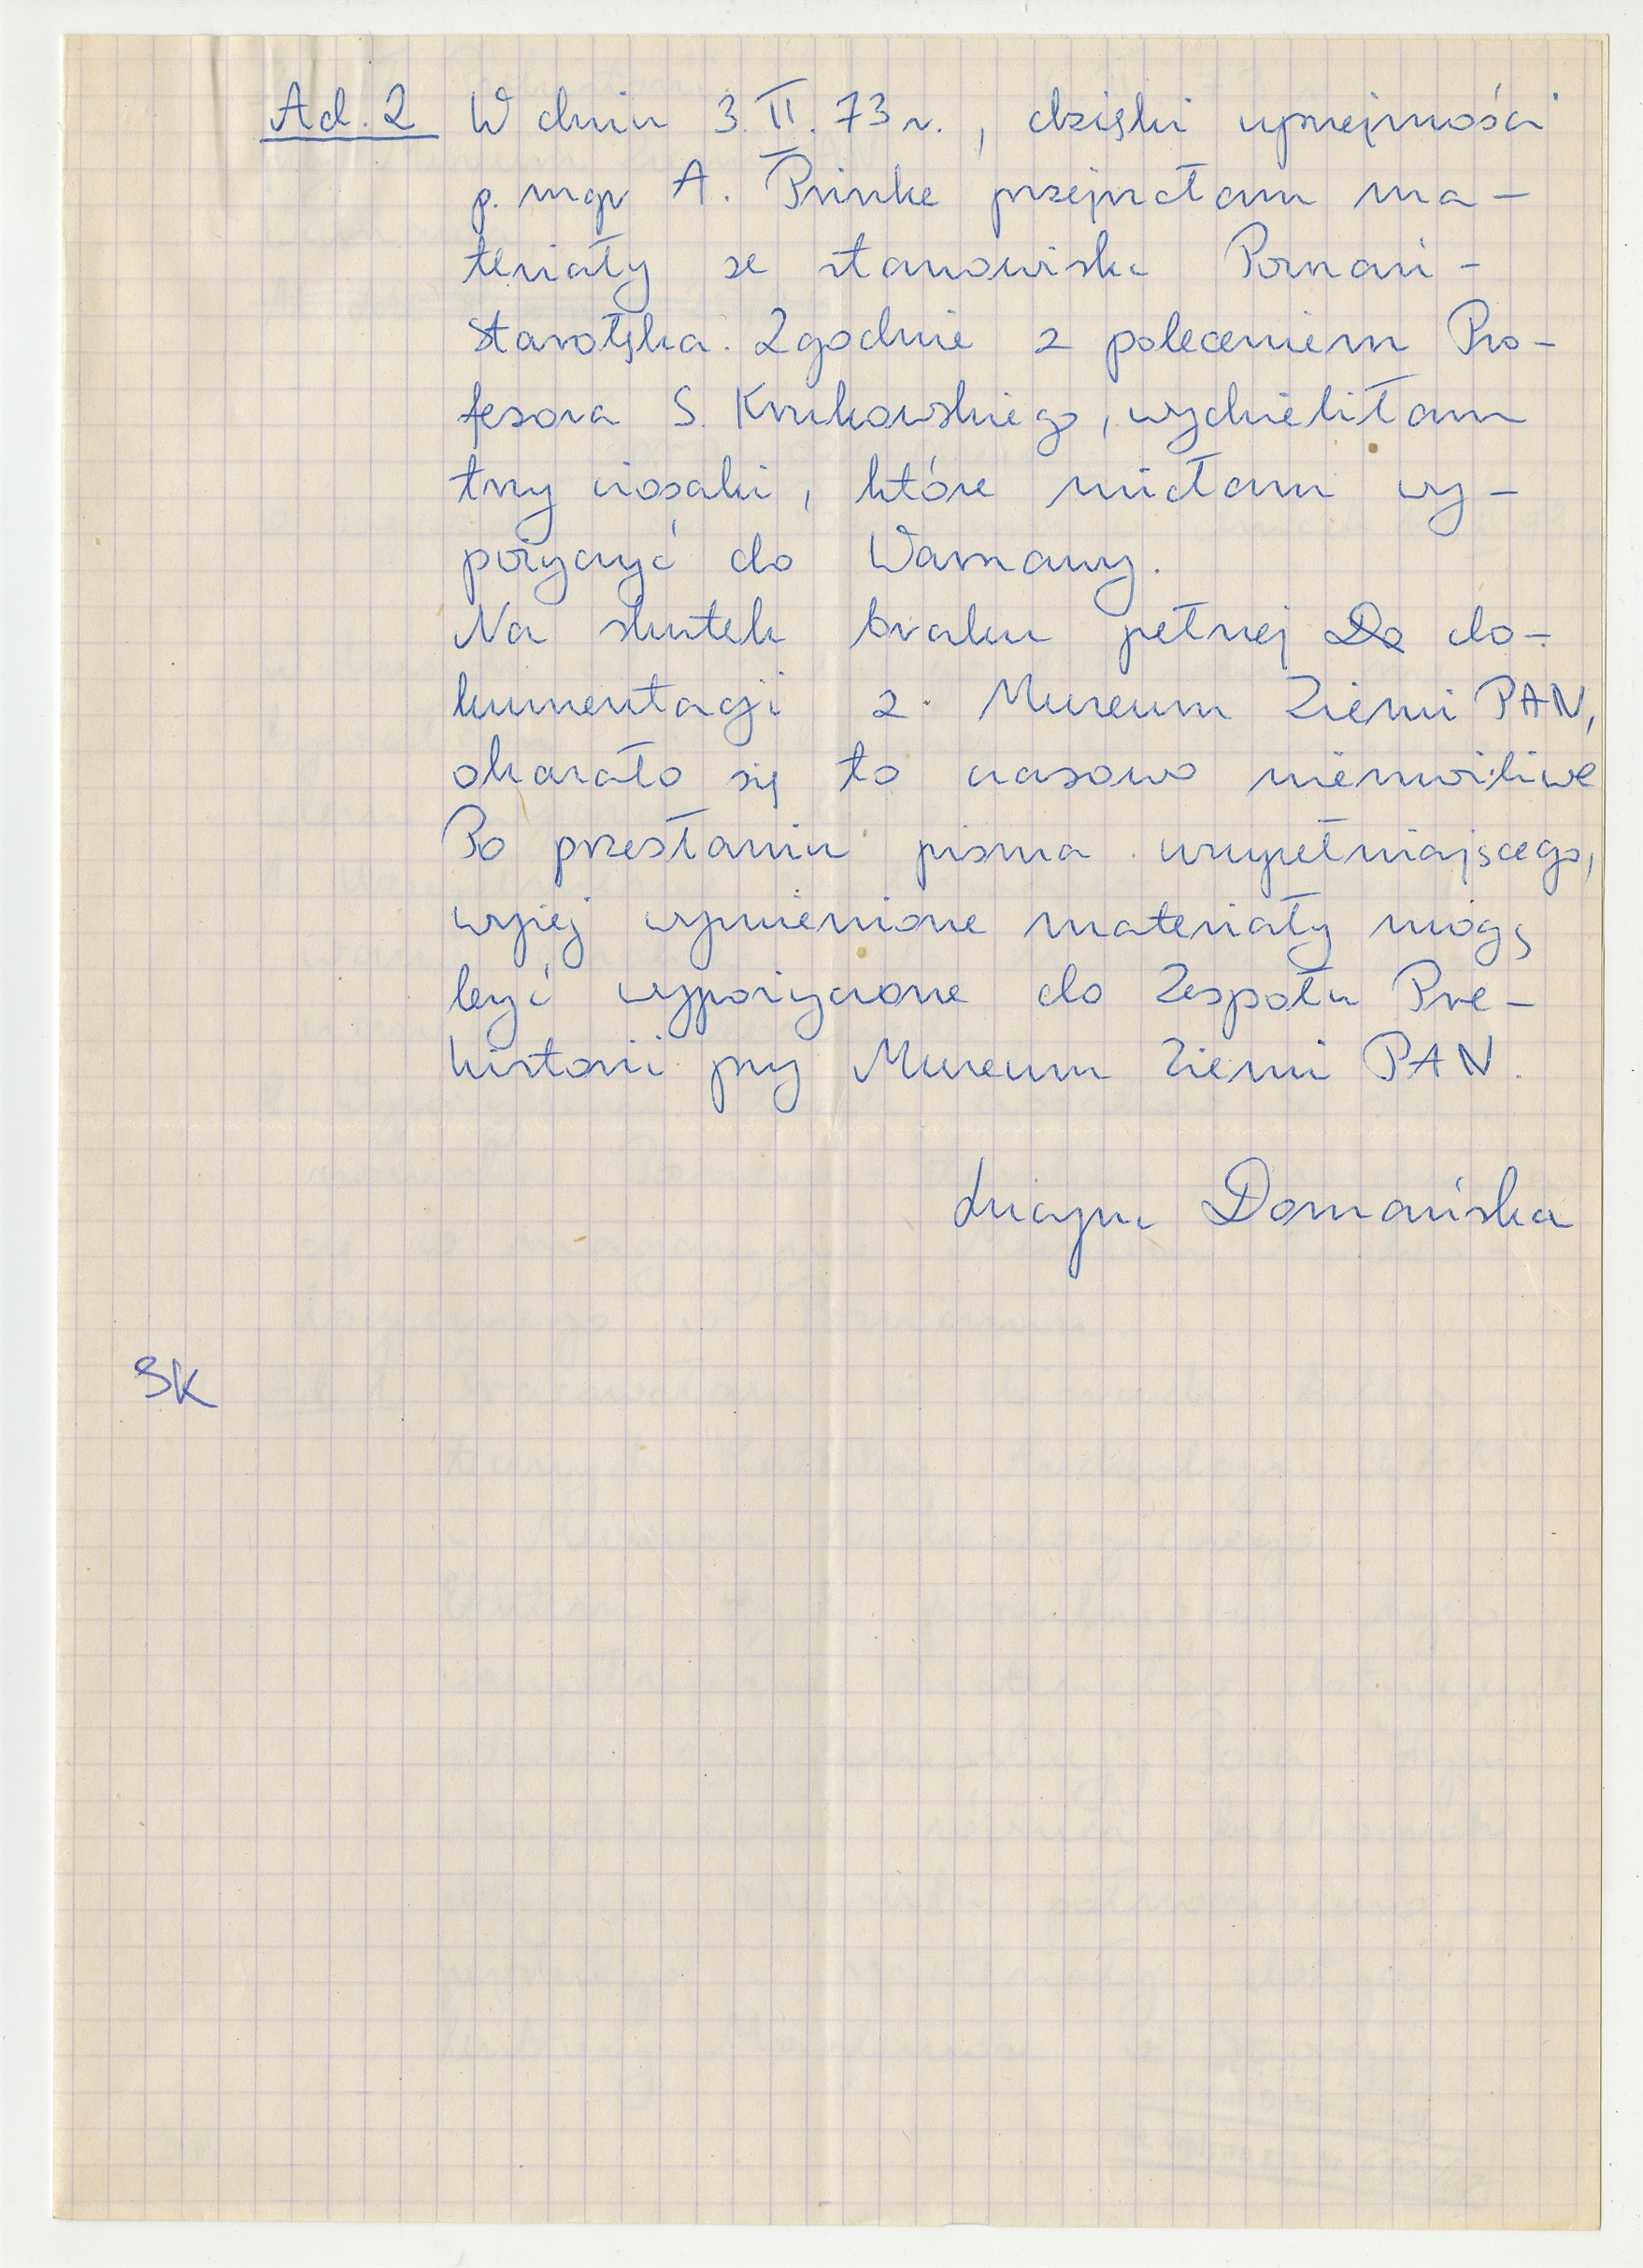 Ad. 2 W dniu 3.II.73 r., dzięki uprzejmości
p. mgr A. Prinke przejrzałam ma-
teriały ze stanowiska Poznań -
Starołęka. Zgodnie z poleceniem Pro-
fesora S. Krukowskiego, wydzieliłam
trzy ciosaki, które miałam wy-
pożyczyć do Warszawy.
Na skutek braku pełnej Do do-
kumentacji z Muzeum Ziemi PAN,
okazało się to czasowo niemożliwe
Po przesłaniu pisma uzupełniającego,
wyżej wymienione materiały mogą
być wypożyczone do Zespołu Pre-
historii przy Muzeum Ziemi PAN.
Lucyna Domańska
SK